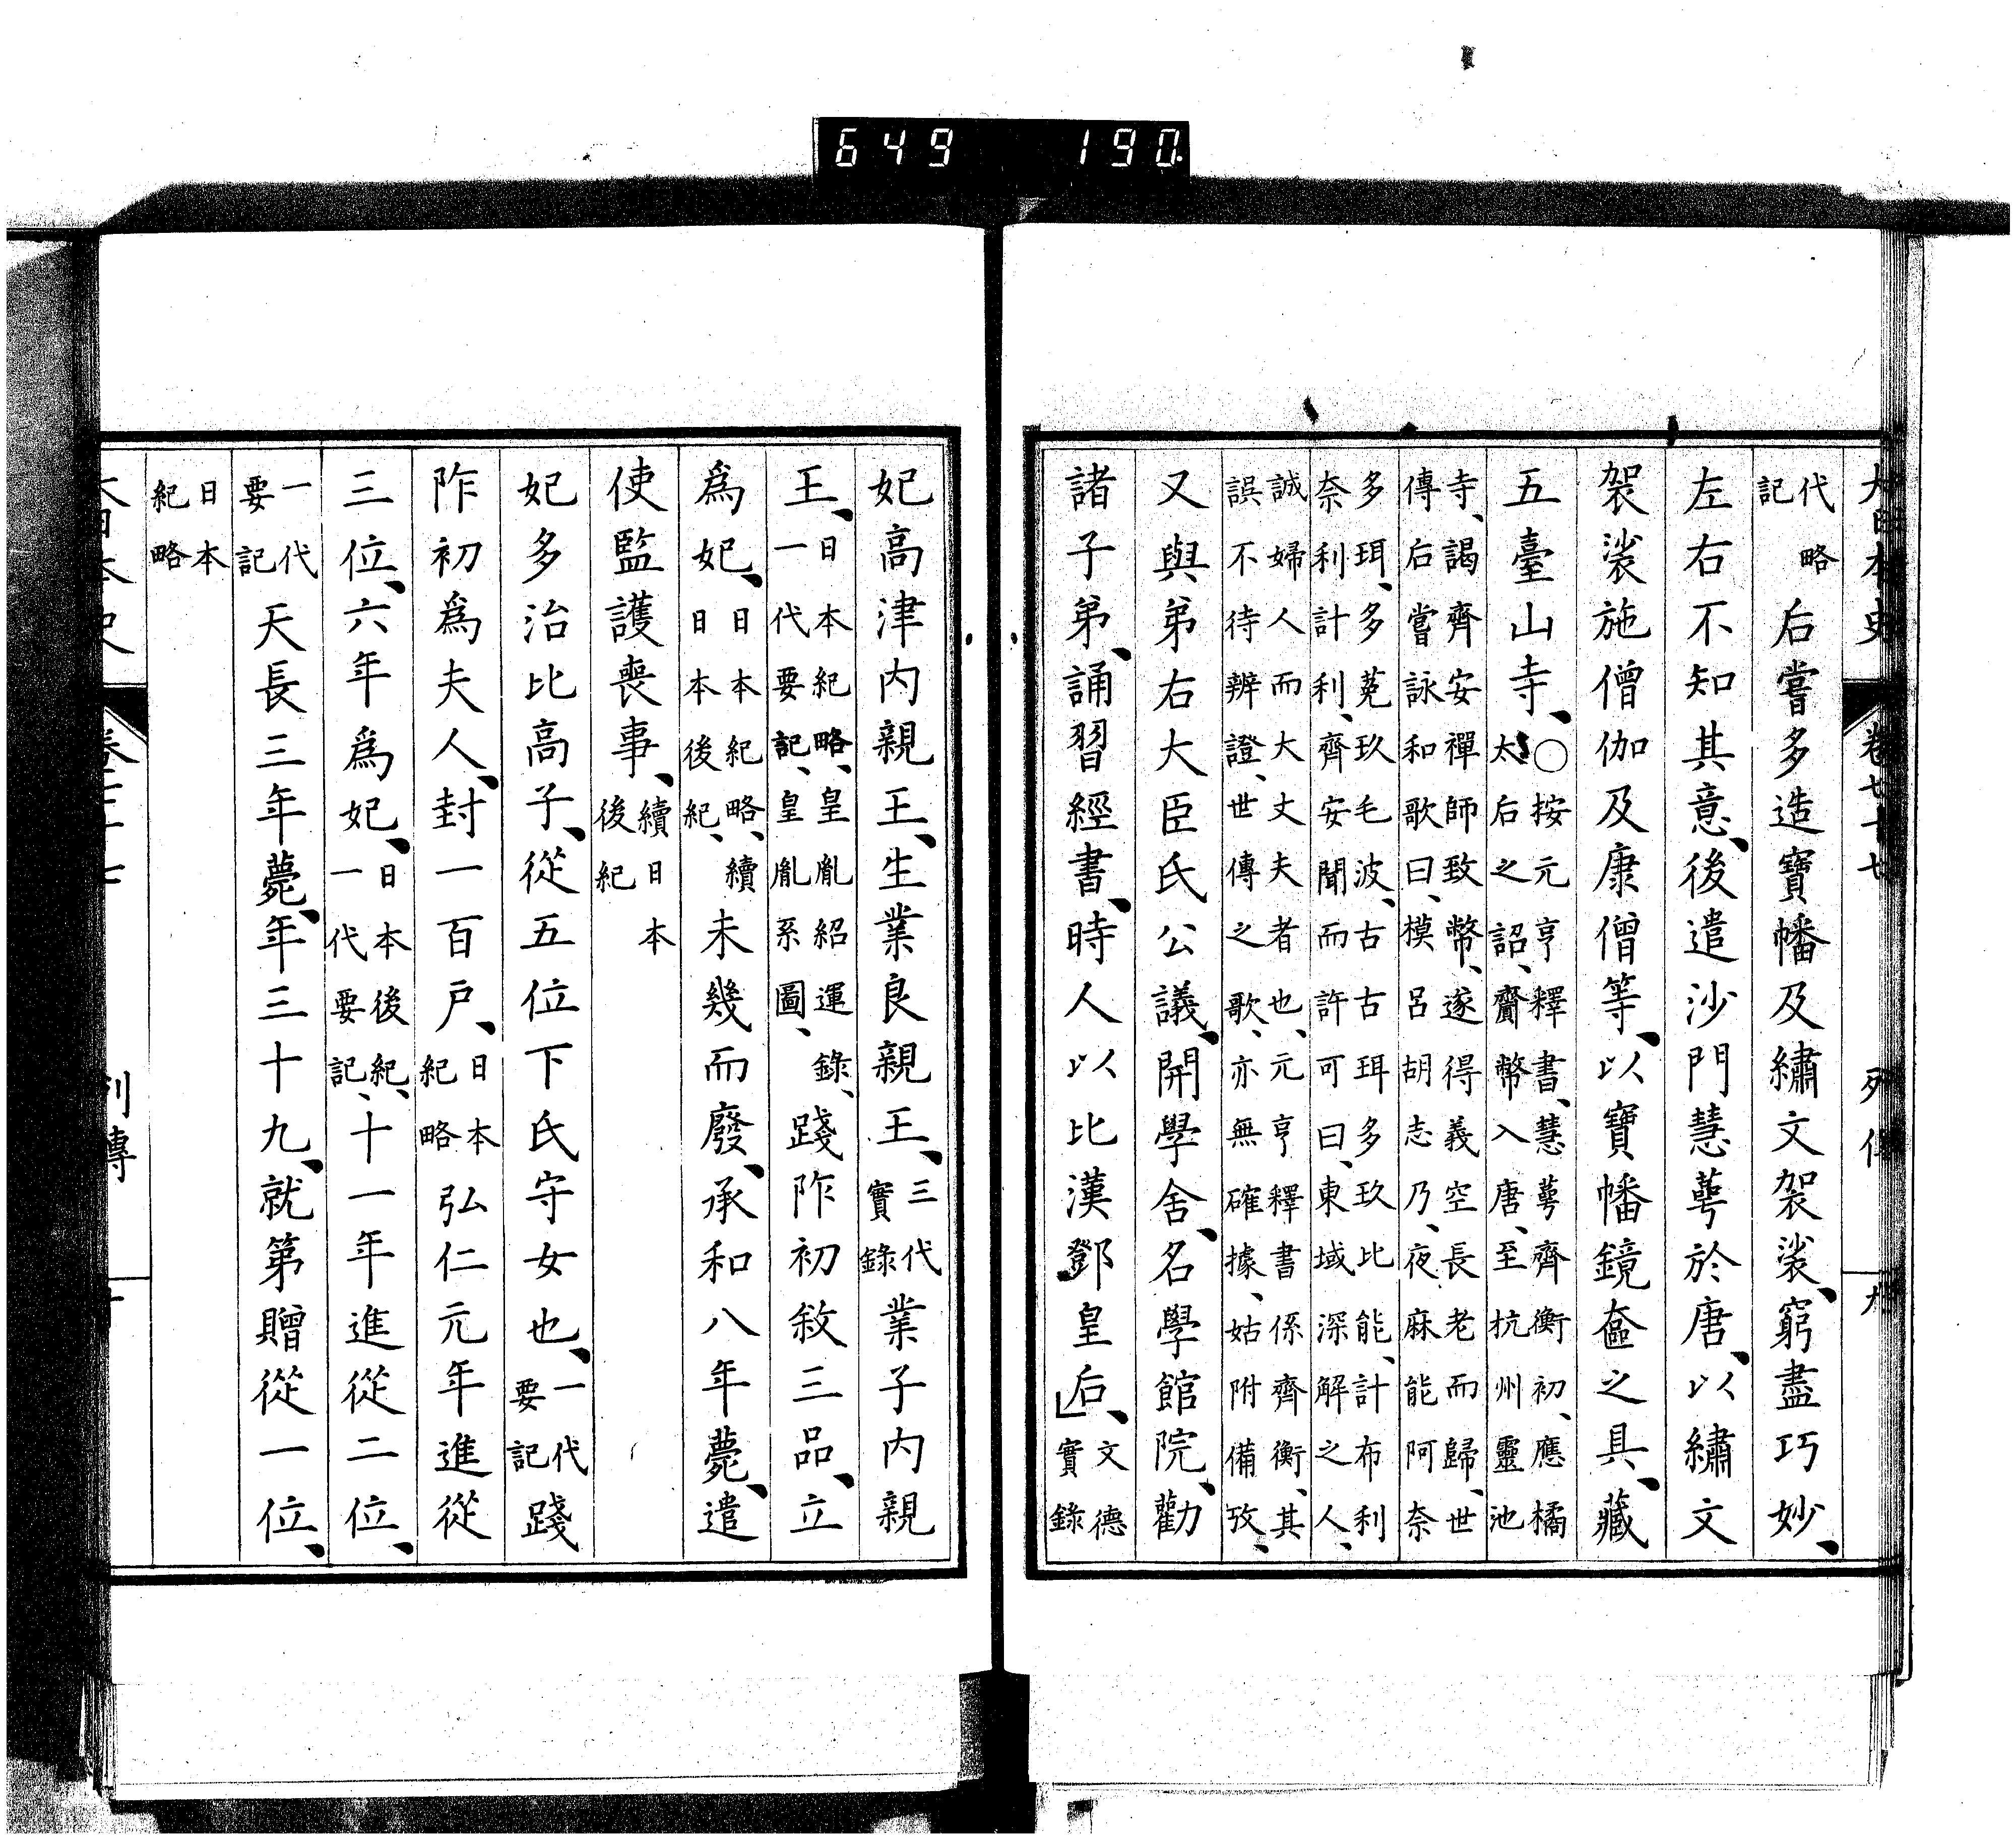 649 190
大日本史 卷七十七 列傳 九
代略記后嘗多造寶幡及繡文袈裟、窮盡巧妙、
左右不知其意、後遣沙門慧萼於唐、以繡文
袈裟施僧伽及康僧等、以寶幡鏡奩之具、藏
五臺山寺、○按元亨釋書、慧萼齊衡初、應橘
太后之詔、齎幣入唐、至杭州靈池
寺、謁齊安禪師致幣、遂得義空長老而歸、世
傳后嘗詠和歌曰、模呂胡志乃、夜麻能阿奈
多珥、多菟玖毛波、古古珥多玖比能、計布利
奈利計利、齊安聞而許可曰、東域深解之人、
誠婦人而大丈夫者也、元亨釋書係齊衡、其
誤不待辨證、世傳之歌、亦無確據、姑附備攷、
又與弟右大臣氏公議、開學舍、名學館院、勸
諸子弟、誦習經書、時人以比漢鄧皇后、」文德實錄
妃高津內親王、生業良親王、三代實錄業子內親
王、日本紀略、皇胤紹運錄、一代要記、皇胤系圖、踐阼初敘三品、立
爲妃、日本紀略、續日本後紀、未幾而廢、承和八年薨、遣
使監護喪事、續日本後紀
妃多治比高子、從五位下氏守女也、一代要記踐
阼初爲夫人、封一百戶、日本紀略弘仁元年進從
三位、六年爲妃、日本後紀、一代要記、十一年進從二位、
一代要記天長三年薨、年三十九、就第贈從一位、
日本紀略
大日本史 卷七十七 列傳 十